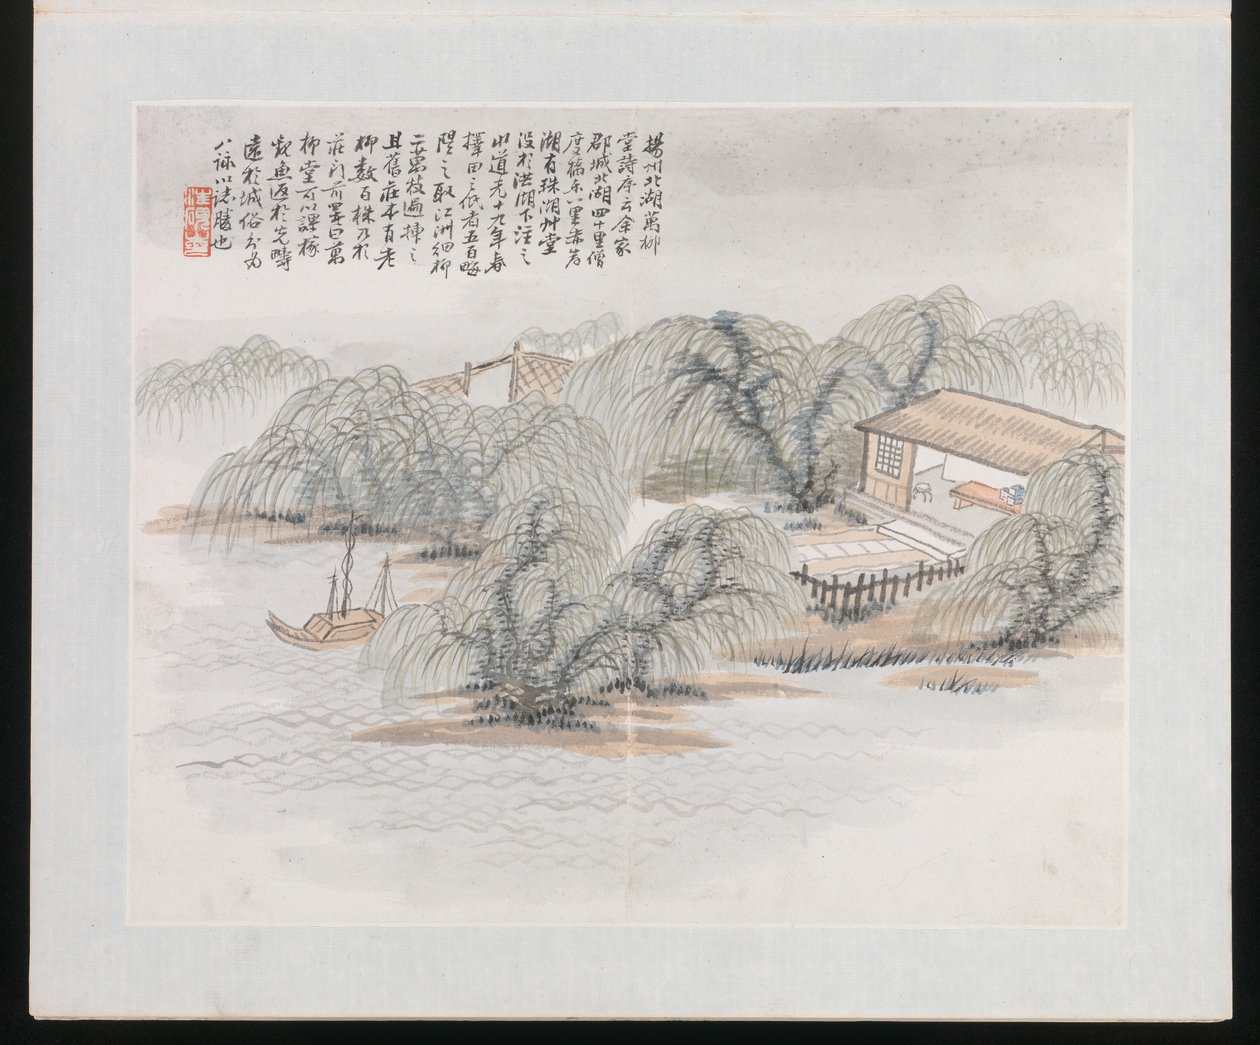 揚州北湖萬柳
堂詩序云余家
郡城北湖四十里僧
度橋东八里赤岸
湖有珠湖艸堂
没於洪湖下注之
水道光十九年春
擇田之低者五百畮
隄之取江洲細柳
二萬枝遍揷之
且舊莊本有老
柳數百株乃於
莊門前署曰萬
柳堂可以課稼
觀魚返於先疇
遠於城俗分为
八詠以志勝也
汪硯山